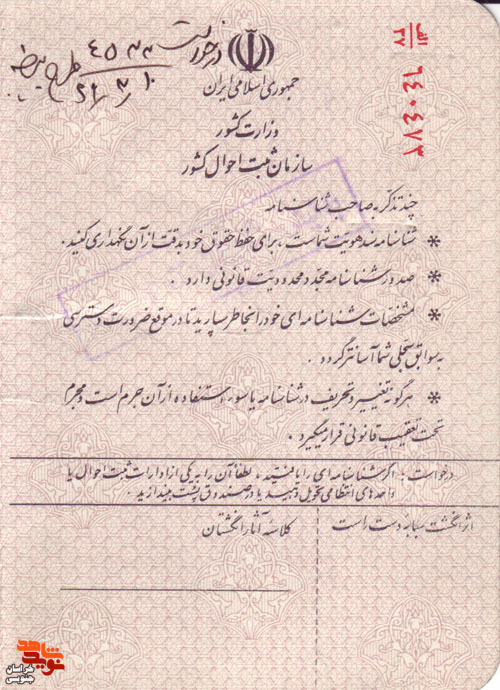 الف
۳۷
۶۴۰۴۷۳
جمهوری اسلامی ایران
وزارت کشور
سازمان ثبت احوال کشور
چند تذکر به صاحب شناسنامه
* شناسنامه سند هویت شماست ، برای حفظ حقوق خود بدقت از آن نگهداری کنید .
* صدور شناسنامه مجدد محدودیت قانونی دارد .
* مشخصات شناسنامه ای خود را بخاطر بسپارید تا در موقع ضرورت دسترسی
به سوابق سجلی شما آسانتر گردد .
* هرگونه تغییر و تحریف در شناسنامه یا سوء استفاده از آن جرم است و مجرم
تحت تعقیب قانونی قرار میگیرد .
درخواست : اگر شناسنامه ای را یافتید ، لطفاً آن را به یکی از ادارات ثبت احوال یا
واحدهای انتظامی تحویل دهید یا در صندوق پست بیندازید .
اثر انگشت سبابه دست راست
کلاسه آثار انگشتان
نوید شاهد
خراسان
جنوبی